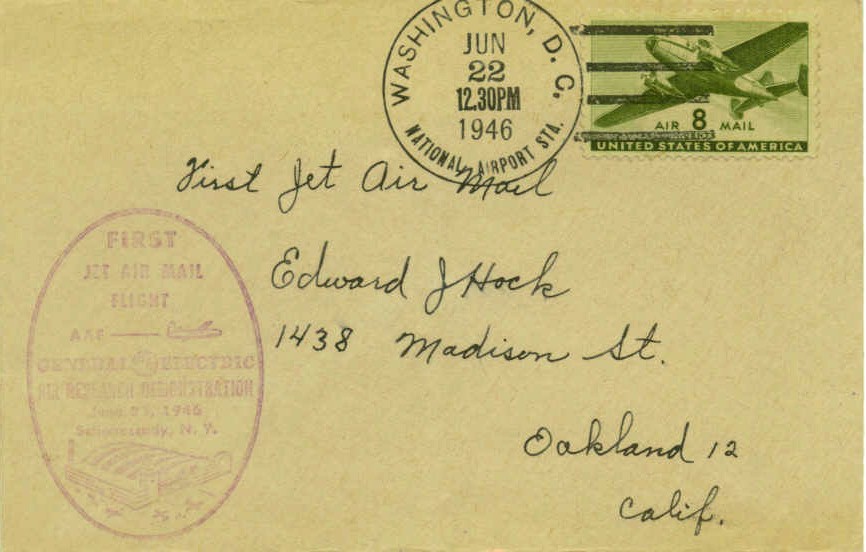 WASHINGTON, D. C.
JUN
22
12.30PM
1946
NATIONAL AIRPORT STA.
AIR 8 MAIL
UNITED STATES OF AMERICA
First Jet Air Mail
Edward J Hock
1438 Madison St.
Oakland 12
Calif.
FIRST
JET AIR MAIL
FLIGHT
AAF
GENERAL ELECTRIC
AIR RESEARCH DEMONSTRATION
June 1946
Schenectady, N. Y.